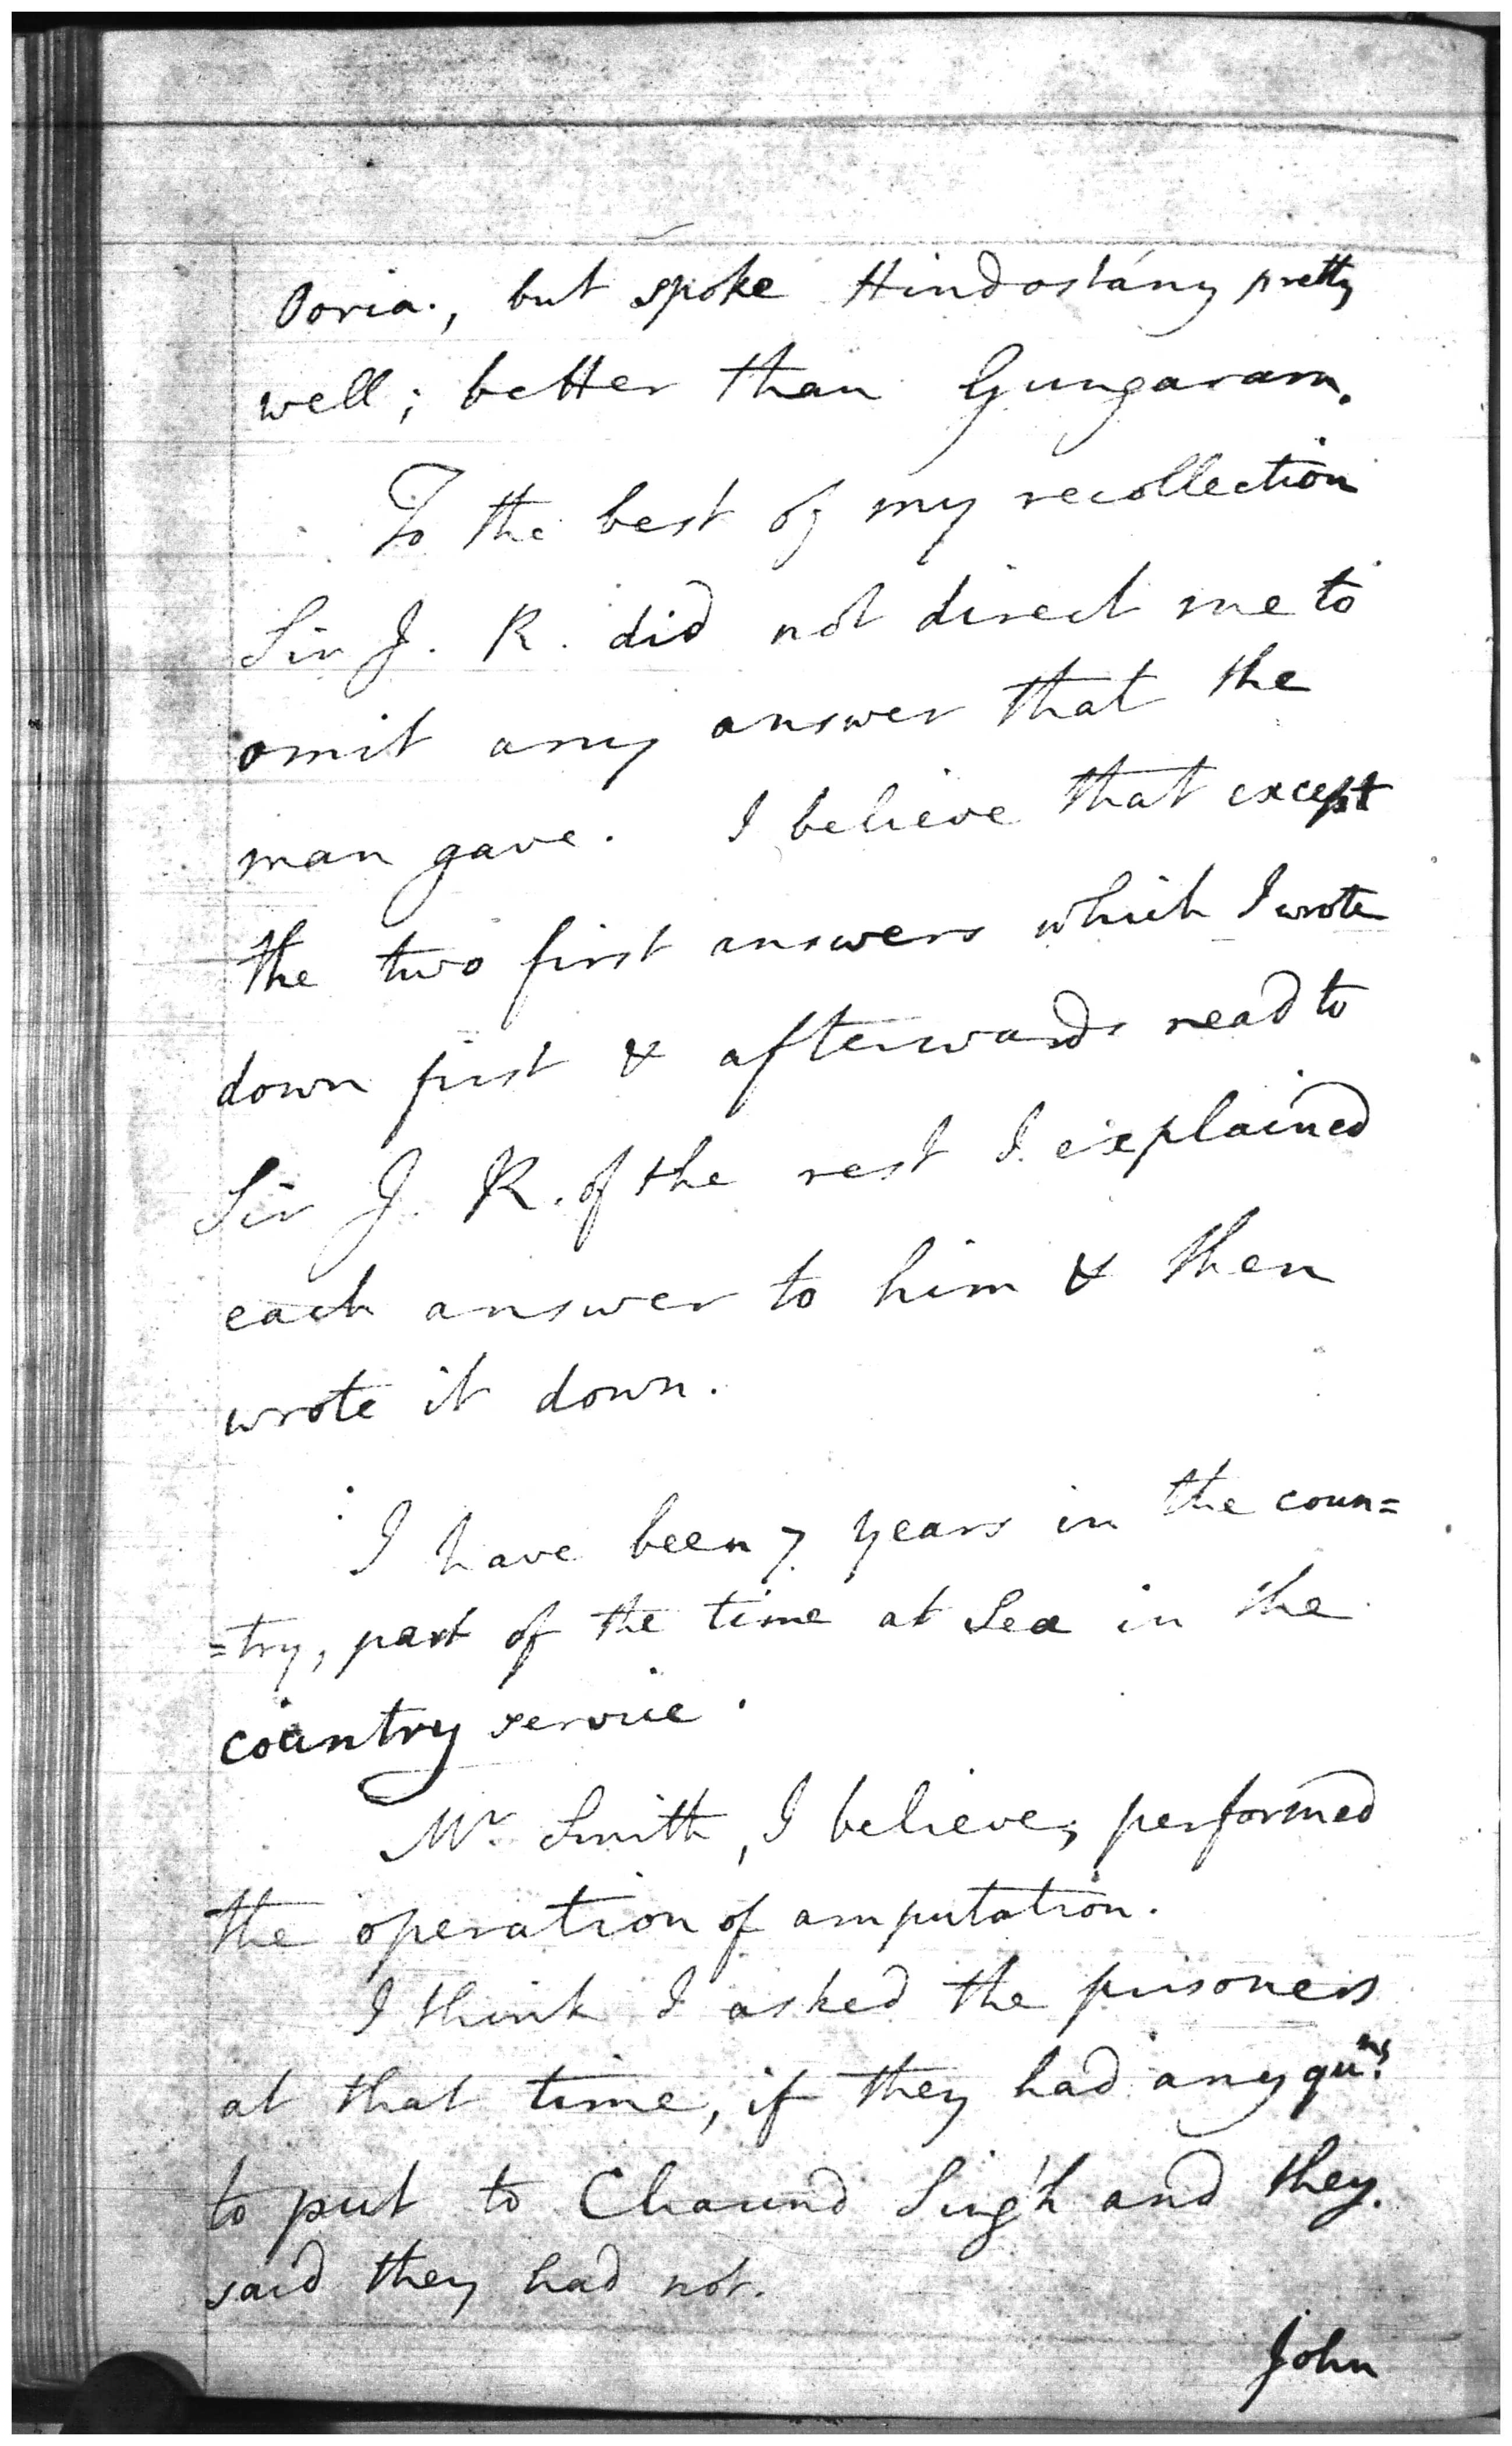 Ooria., but spoke Hindostány pretty
well; better than Gungaram.
To the best of my recollection
Sir J. R. did not direct me to
omit any answer that the
man gave. I believe that except
the two first answers which I wrote
down first & afterwards read to
Sir J. R. of the rest I explained
each answer to him & then
wrote it down.
I have been 7 years in the coun=
=try, part of the time at Sea in the
country service.
Mr Smith, I believe, performed
the operation of amputation.
I think I asked the prisoners
at that time, if they had any quns
to put to Chaund Singh and they.
said they had not.
John